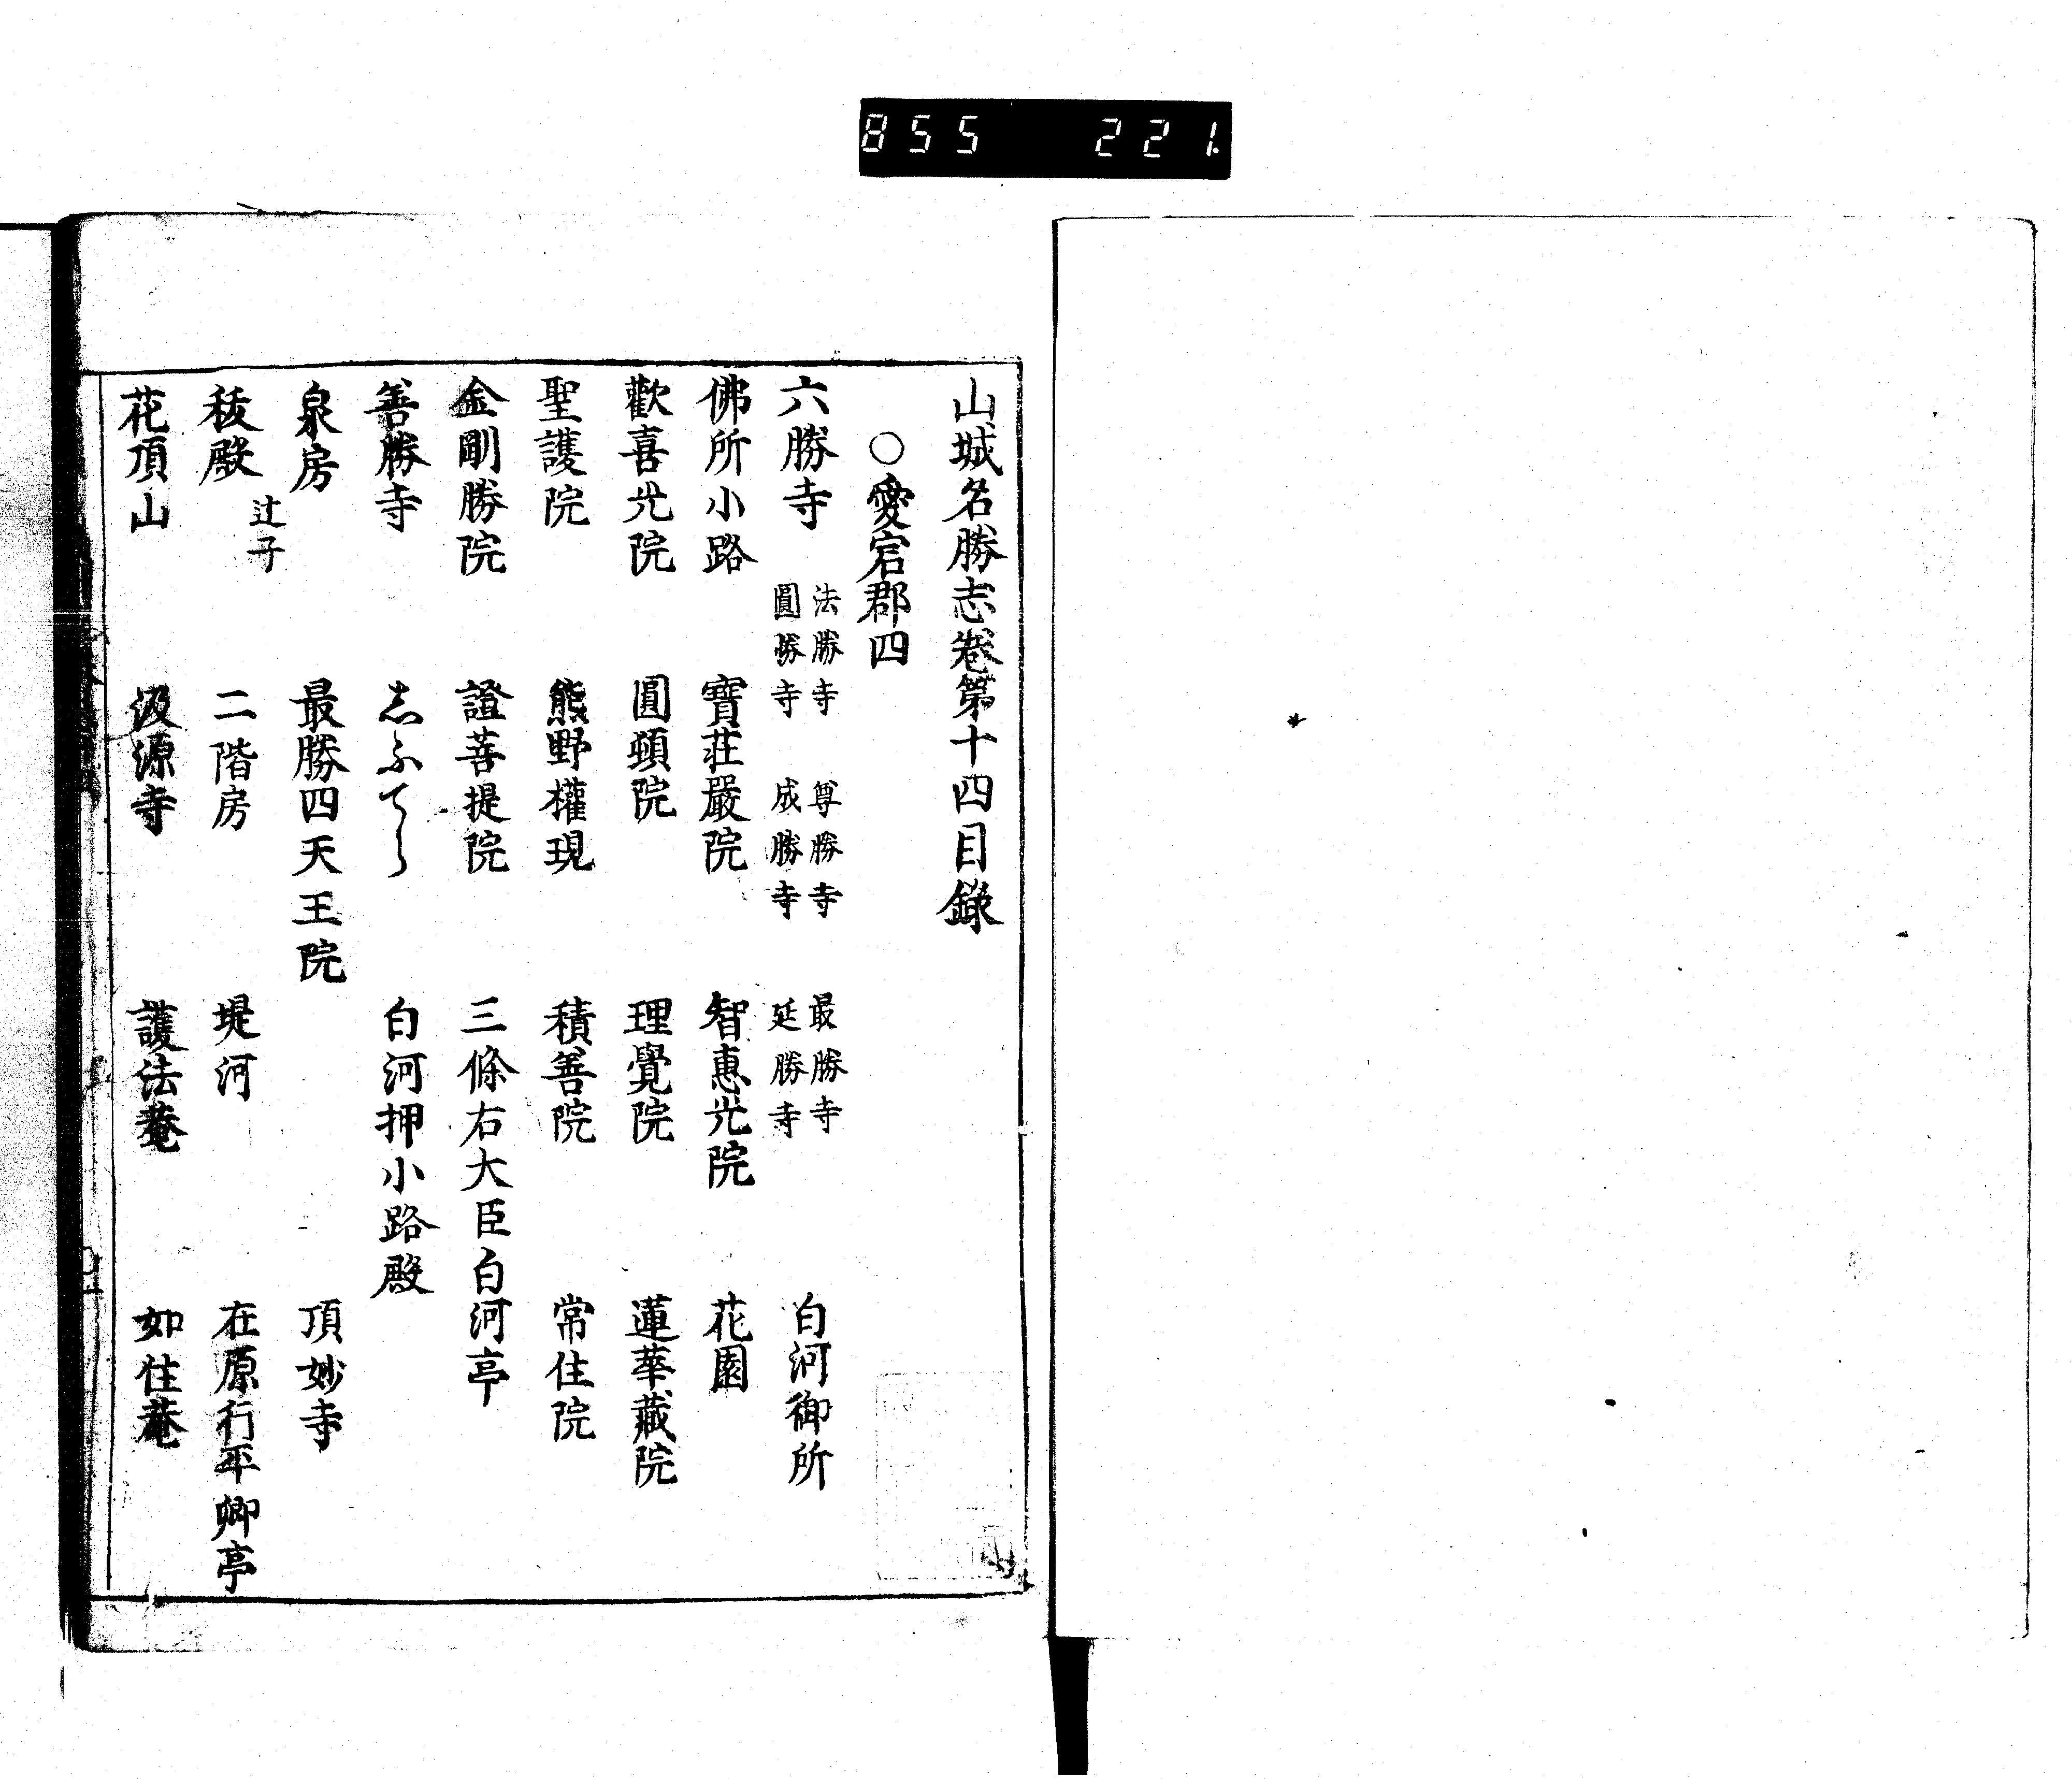 855 221.
山城名勝志卷第十四目錄
○愛宕郡四
六勝寺 法勝寺 尊勝寺 最勝寺 圓勝寺 成勝寺 延勝寺 白河御所
佛所小路 寶莊嚴院 智惠光院 花園
歡喜光院 圓頓院 理覺院 蓮華藏院
聖護院 熊野權現 積善院 常住院
金剛勝院 證菩提院 三條右大臣白河亭
善勝寺 志ふてら 白河押小路殿
泉房 最勝四天王院 頂妙寺
祓殿辻子 二階房 堤河 在原行平卿亭
花頂山 汲源寺 護法菴 如住菴